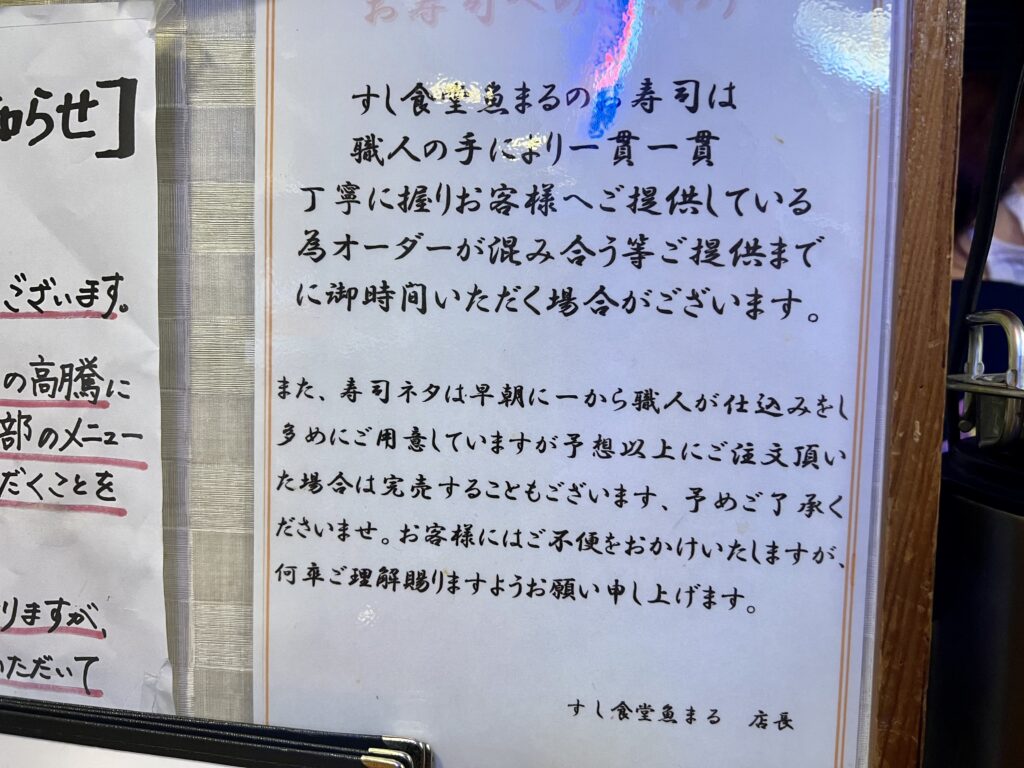 らせ】
ございます。
の高騰に
部のメニュー
だくことを
りますが、
いただいて
お寿司への
すし食堂魚まるのお寿司は
職人の手により一貫一貫
丁寧に握りお客様へご提供している
為オーダーが混み合う等ご提供まで
に御時間いただく場合がございます。
また、寿司ネタは早朝に一から職人が仕込みをし
多めにご用意していますが予想以上にご注文頂い
た場合は完売することもございます、予めご了承く
ださいませ。お客様にはご不便をおかけいたしますが、
何卒ご理解賜りますようお願い申し上げます。
すし食堂魚まる 店長